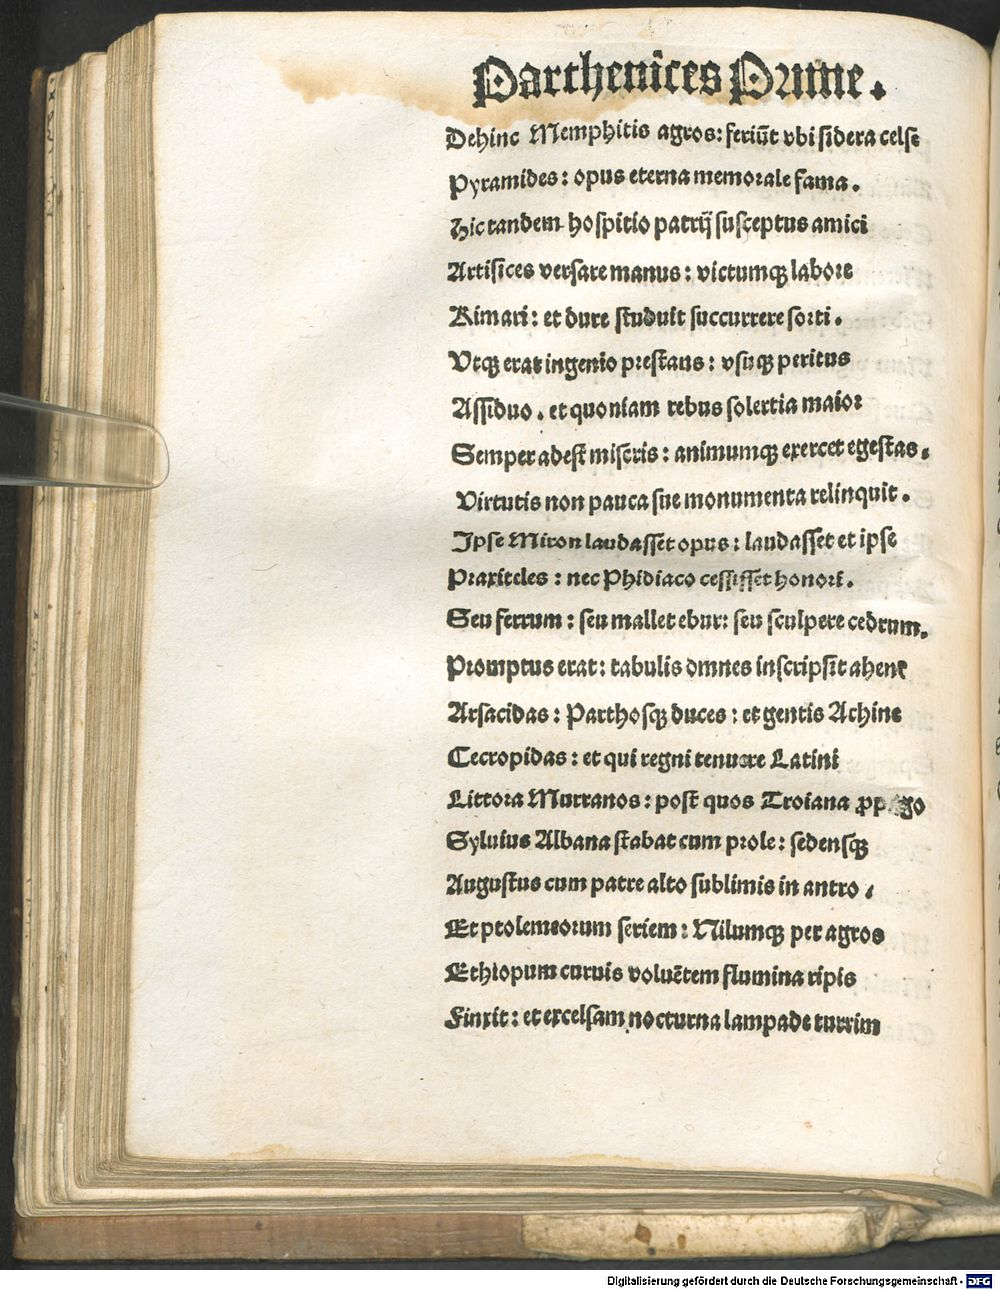 Parthenīces Prime.
Dehinc Memphitis agros: feriūt vbi sidera celse
Pyramides: opus eterna memorale fama.
Hic tandem hospitio patrij susceptus amici
Artifices versare manus: victumqꝫ labore
Rimari: et dure studuit succurrere sorti.
Vtqꝫ erat ingenio prestans: vsuqꝫ peritus
Assiduo. et quoniam rebus solertia maior
Semper adest miseris: animumqꝫ exercet egestas.
Virtutis non pauca sue monumenta relinquit.
Ipse Miron laudasset opus: laudasset et ipse
Praxiteles: nec Phidiaco cessisset honori.
Seu ferrum: seu mallet ebur: seu sculpere cedrum.
Promptus erat: tabulis omnes inscripsit ahene
Arsacidas: Parthosqꝫ duces: et gentis Achine
Cecropidas: et qui regni tenuere Latini
Littora Murranos: post quos Troiana
Syluius Albana stabat cum prole: sedensqꝫ
Augustus cum patre alto sublimis in antro.
Et ptolemeorum seriem: Nilumqꝫ per agros
Ethiopum curuis voluētem flumina ripis
Finxit: et excelsam nocturna lampade turrim
Digitalisierung gefördert durch die Deutsche Forschungsgemeinschaft - DFG